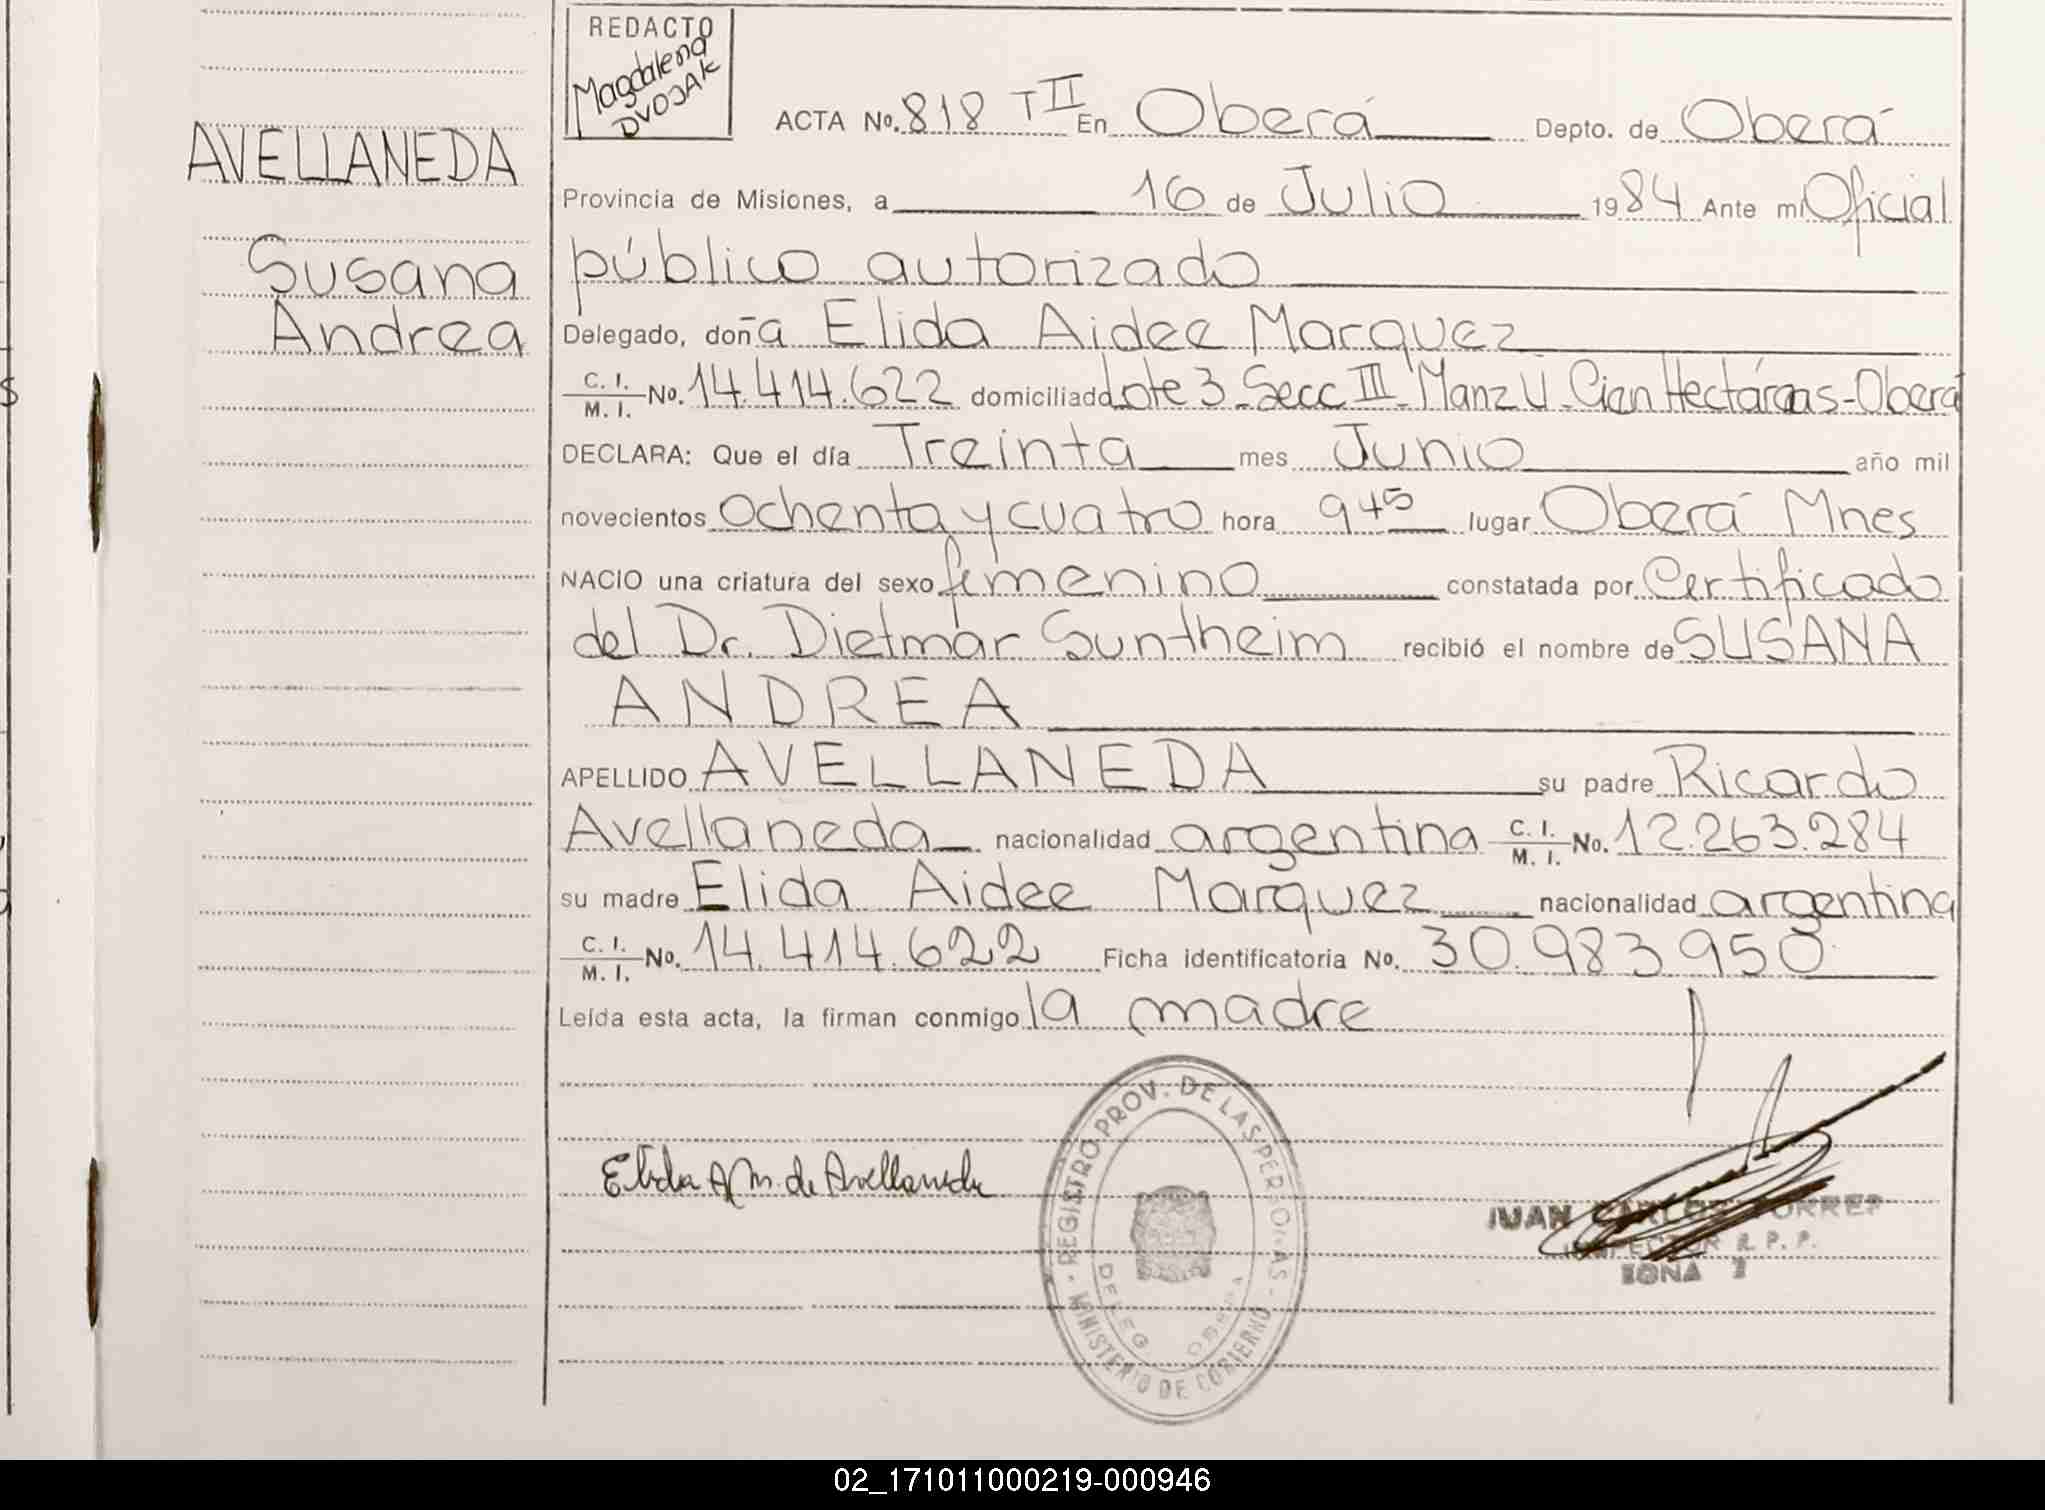 REDACTO
Magdalena
DVOJAK
AVELLANEDA
Susana
Andrea
ACTA No. 818 T II En Oberá Depto. de Oberá
Provincia de Misiones, a 16 de Julio 1984 Ante mi Oficial
público autorizado
Delegado, doña Elida Aidee Marquez
C. I. / M. I. No. 14.414.622 domiciliado Lote 3 - Secc III - Manz U - Cien Hectáreas - Oberá
DECLARA: Que el día Treinta mes Junio año mil
novecientos ochenta y cuatro hora 9 45 lugar Oberá Mnes
NACIO una criatura del sexo femenino constatada por Certificado
del Dr. Dietmar Suntheim recibió el nombre de SUSANA
ANDREA
APELLIDO AVELLANEDA su padre Ricardo
Avellaneda nacionalidad argentina C. I. / M. I. No. 12.263.284
su madre Elida Aidee Marquez nacionalidad argentina
C. I. / M. I. No. 14.414.622 Ficha identificatoria No. 30.983950
Leída esta acta, la firman conmigo la madre
Elida A M. de Avellaneda
REGISTRO PROV. DE LAS PERSONAS - MINISTERIO DE GOBIERNO
DELEG OBERA
JUAN CARLOS TORRES
INSPECTOR R. P. P.
ZONA
02_171011000219-000946